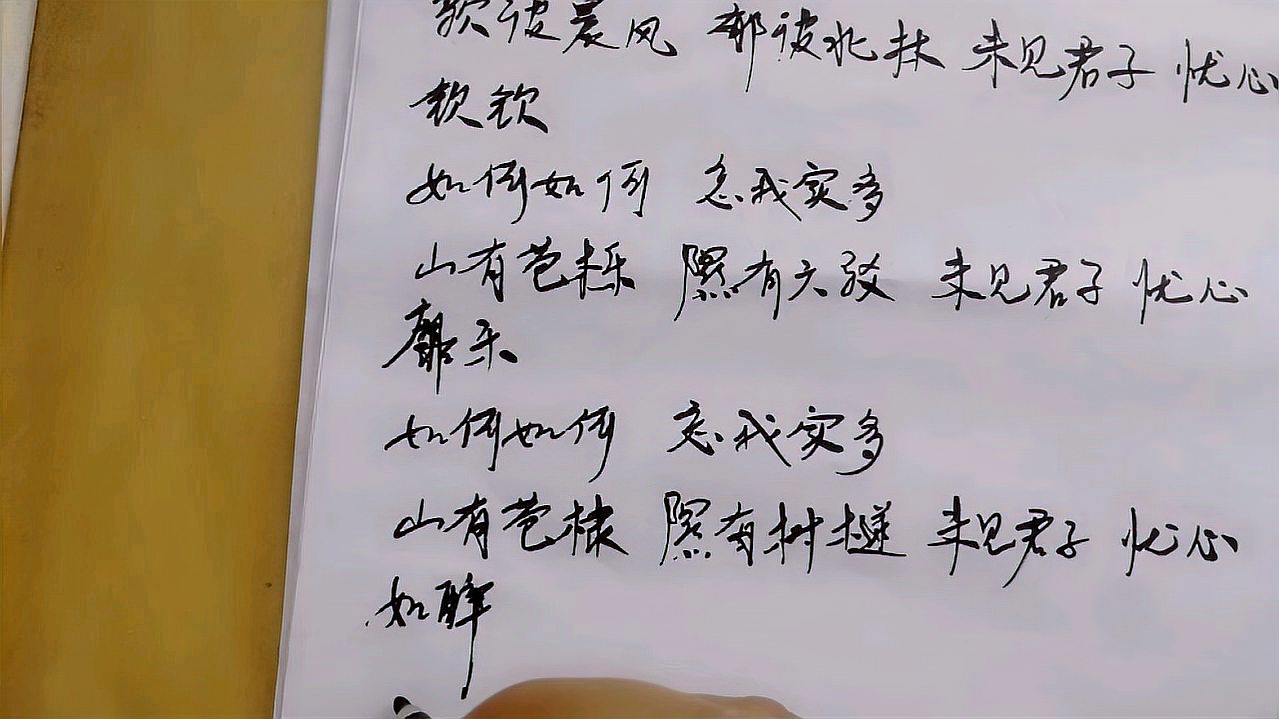 鴥彼晨风 郁彼北林 未见君子 忧心
钦钦
如何如何 忘我实多
山有苞栎 隰有六驳 未见君子 忧心
靡乐
如何如何 忘我实多
山有苞棣 隰有树檖 未见君子 忧心
如醉